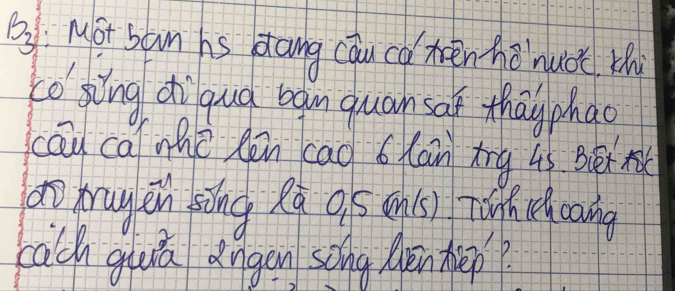 B3: Một bạn hs đang câu cá trên hồ nước. khi
có sóng đi qua bạn quan sát thấy phao
câu cá nhô lên cao 6 lần trg 4s. Biết tốc
độ truyền sóng là 0,5 (m/s). Tính khoảng
cách giữa 2 ngọn sóng liên tiếp?